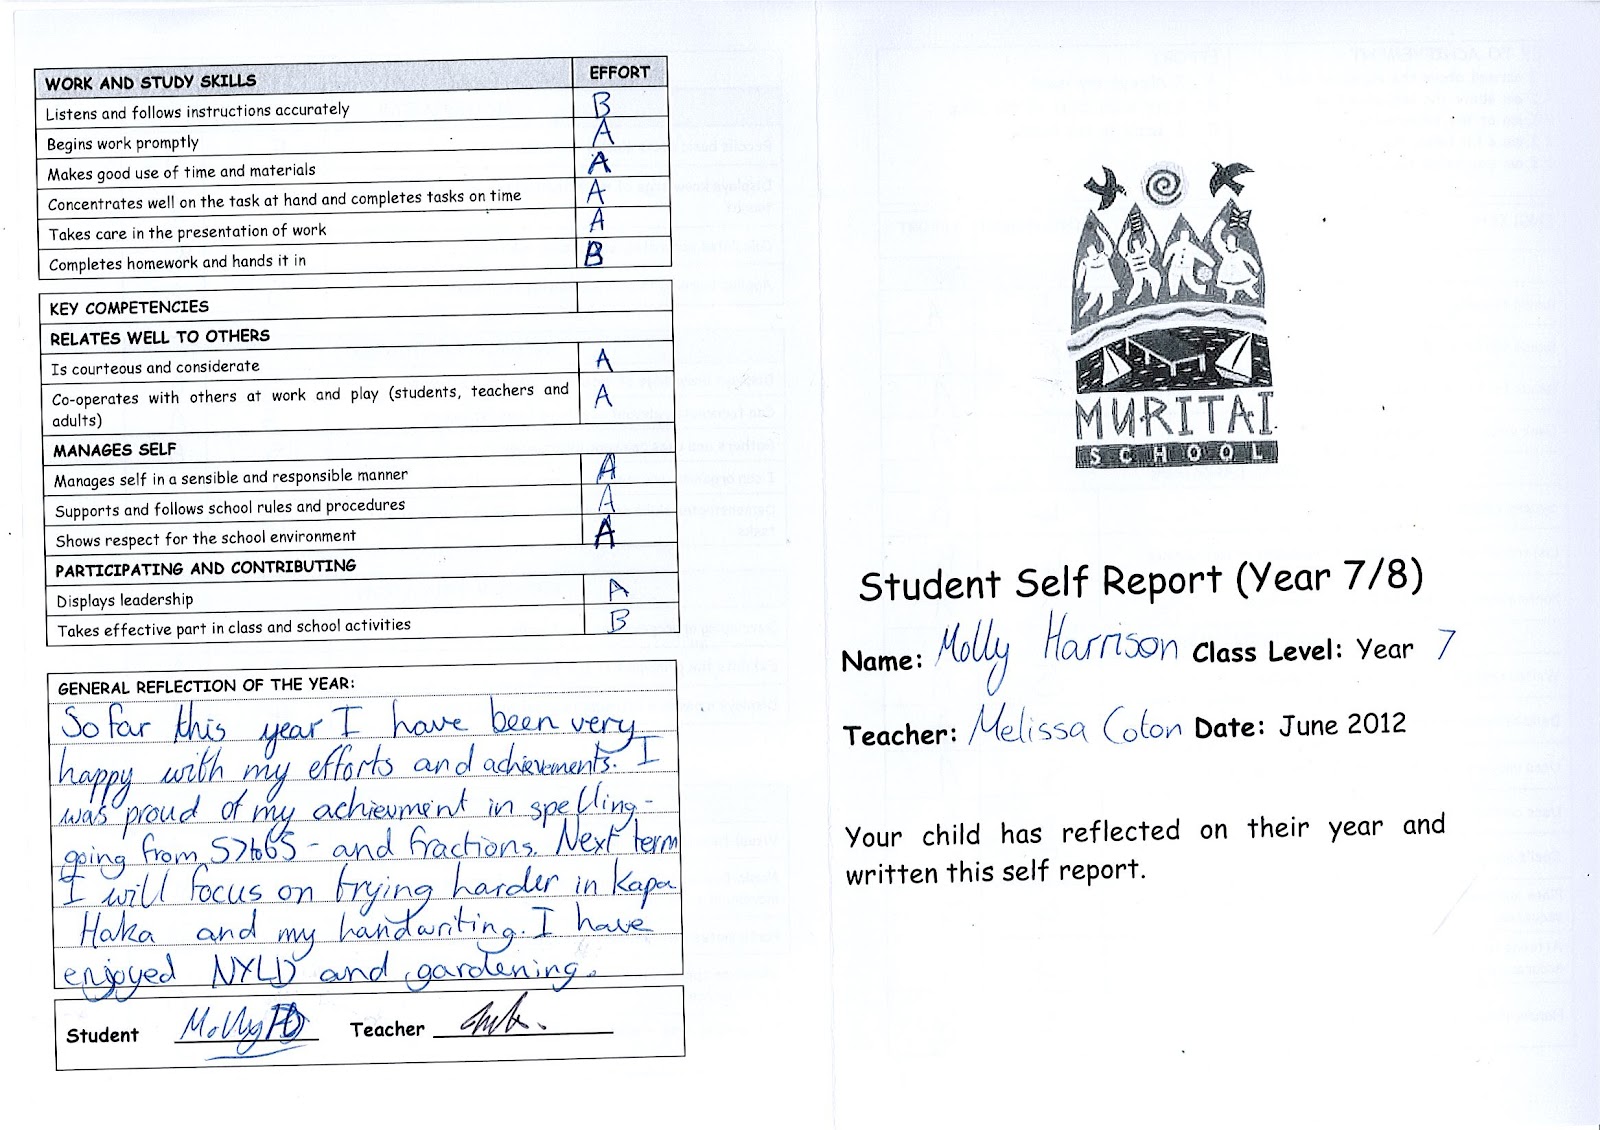 WORK AND STUDY SKILLS EFFORT
Listens and follows instructions accurately B
Begins work promptly A
Makes good use of time and materials A
Concentrates well on the task at hand and completes tasks on time A
Takes care in the presentation of work A
Completes homework and hands it in B
KEY COMPETENCIES
RELATES WELL TO OTHERS
Is courteous and considerate A
Co-operates with others at work and play (students, teachers and
adults) A
MANAGES SELF
Manages self in a sensible and responsible manner A
Supports and follows school rules and procedures A
Shows respect for the school environment A
PARTICIPATING AND CONTRIBUTING
Displays leadership A
Takes effective part in class and school activities B
GENERAL REFLECTION OF THE YEAR:
So far this year I have been very
happy with my efforts and achievements. I
was proud of my achievment in spelling-
going from 57to65 - and fractions. Next term
I will focus on trying harder in Kapa
Haka and my handwriting. I have
enjoyed NYLD and gardening.
Student Molly Teacher
MURITAI
SCHOOL
Student Self Report (Year 7/8)
Name: Molly Harrison Class Level: Year 7
Teacher: Melissa Coton Date: June 2012
Your child has reflected on their year and
written this self report.